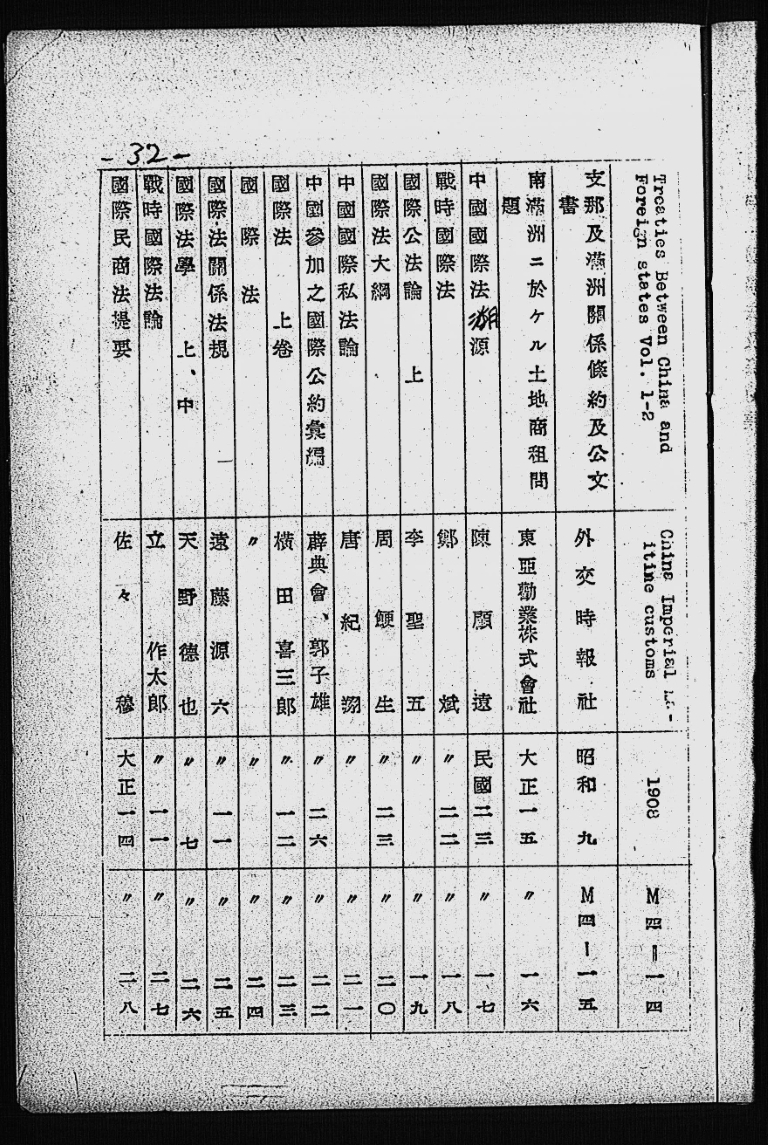 - 32 -
Treaties Between China and
Foreign states Vol. 1-2
China Imperial
itine customs
1908
M四=一四
支那及滿洲關係條約及公文
書
外交時報社
昭和 九
M四ー一五
南滿洲ニ於ケル土地商租問
題
東亞勸業株式會社
大正一五
〃 一六
中國國際法溯源
陳顧遠
民國二三
〃 一七
戰時國際法
鄭斌
〃 二二
〃 一八
國際公法論 上
李聖五
〃
〃 一九
國際法大綱
周鯁生
〃 二三
〃 二〇
中國國際私法論
唐紀翊
〃
〃 二一
中國參加之國際公約彙編
薛典會、郭子雄
〃 二六
〃 二二
國際法 上卷
橫田喜三郎
〃 一二
〃 二三
國際法
〃
〃
〃 二四
國際法關係法規
遠藤源六
〃 一一
〃 二五
國際法學 上、中
天野德也
〃 七
〃 二六
戰時國際法論
立 作太郎
〃 一一
〃 二七
國際民商法提要
佐々 穆
大正一四
〃 二八